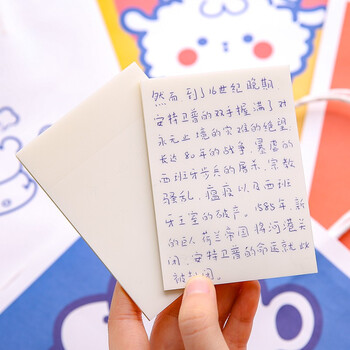 然而 到了16世纪晚期
安特卫普的双手握满了对
永无止境的灾难的绝望
长达 80年的战争，暴虐的
西班牙步兵的屠杀，宗教
骚乱，瘟疫以及西班
牙王室的破产。1585年，新
的巨人 荷兰帝国 将河港关
闭，安特卫普的命运就此
被封闭。